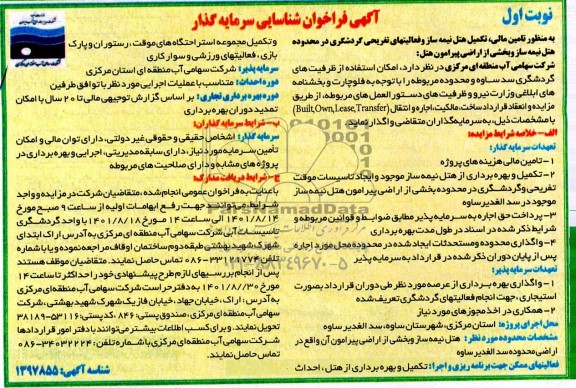 نوبت اول
آگهی فراخوان شناسایی سرمایه گذار
به منظور تامین مالی، تکمیل هتل نیمه ساز و فعالیتهای تفریحی گردشگری در محدوده
هتل نیمه ساز و بخشی از اراضی پیرامون هتل:
شرکت سهامی آب منطقه ای مرکزی در نظر دارد، امکان استفاده از ظرفیت های
گردشگری سد ساوه و محدوده مربوطه را با توجه به فلوچارت و بخشنامه
های ابلاغی وزارت نیرو و ظرفیت های دستورالعمل های مربوطه، از طریق
مزایده و انعقاد قرارداد ساخت، مالکیت، اجاره و انتقال (Built,Own,Lease,Transfer)
با مشخصات ذیل، به سرمایه گذاران متقاضی واگذار نماید
الف - خلاصه شرایط مزایده:
تعهدات سرمایه گذار:
۱- تامین مالی هزینه های پروژه
۲- تکمیل و بهره برداری از هتل نیمه ساز موجود و ایجاد تاسیسات موقت
تفریحی و گردشگری در محدوده بخشی از اراضی پیرامون هتل نیمه ساز
موجود در سد الغدیر ساوه
۳- پرداخت حق اجاره به سرمایه پذیر مطابق ضوابط و قوانین مربوطه و
شرایط ذکر شده در اسناد در طول مدت بهره برداری
۴- واگذاری محدوده و مستحدثات ایجاد شده در محدوده محل مورد اجاره
پس از پایان دوران ذکر شده در قرارداد به سرمایه پذیر
تعهدات سرمایه پذیر:
۱- واگذاری بهره برداری از عرصه مورد نظر طی دوران قرارداد بصورت
استیجاری، جهت انجام فعالیتهای گردشگری تعریف شده
۲- همکاری در اخذ مجوزهای مورد نیاز
محل اجرای پروژه: استان مرکزی، شهرستان ساوه، سد الغدیر ساوه
مشخصات محدوده مورد نظر: هتل نیمه ساز و بخشی از اراضی پیرامون آن واقع در
اراضی محدوده سد الغدیر ساوه
فعالیتهای ممکن جهت برنامه ریزی و اجرا: تکمیل و بهره برداری از هتل، احداث
و تکمیل مجموعه استراحتگاه های موقت، رستوران و پارک
بازی، فعالیتهای ورزشی و سوارکاری
سرمایه پذیر: شرکت سهامی آب منطقه ای استان مرکزی
دوره احداث: متناسب با عملیات اجرایی مورد نظر با توافق طرفین
دوره بهره برداری تجاری: بر اساس گزارش توجیهی مالی تا ۲۰ سال با امکان
تمدید دوران بهره برداری
ب- شرایط سرمایه گذاران:
سرمایه گذار: اشخاص حقیقی و حقوقی غیر دولتی، دارای توان مالی و امکان
تأمین سرمایه مورد نیاز، دارای سابقه مدیریتی، اجرایی و بهره برداری در
پروژه های مشابه و دارای صلاحیت های مربوطه
ج- شرایط دریافت مدارک:
با عنایت به فراخوان عمومی انجام شده، متقاضیان شرکت در مزایده و واجد
شرایط می توانند جهت رفع ابهامات اولیه از ساعت ۹ صبح مورخ
۱۴۰۱/۸/۱۴ الی ساعت ۱۴ مورخ ۱۴۰۱/۸/۱۸ با واحد گردشگری
تاسیسات آبی شرکت سهامی آب منطقه ای مرکزی به آدرس اراک ابتدای
شهرک شهید بهشتی طبقه دوم ساختمان اوقاف مراجعه نموده و یا با شماره
تلفن ۳۳۱۲۸۷۷۴-۰۸۶ تماس حاصل نمایند. متقاضیان موظف هستند
پس از انجام بررسیهای لازم طرح پیشنهادی خود را حداکثر تا ساعت ۱۴
مورخ ۱۴۰۱/۸/۳۰ به دفتر حراست شرکت سهامی آب منطقه ای مرکزی
به آدرس: اراک، خیابان جهاد، خیابان فاز یک شهرک شهید بهشتی، شرکت
سهامی آب منطقه ای مرکزی، صندوق پستی: ۸۴۶، کد پستی: ۵۳۱۱۶-۳۸۱۸۹
تحویل نمایند. و برای کسب اطلاعات بیشتر می توانند با دفتر امور قراردادها
شرکت سهامی آب منطقه ای مرکزی با شماره تلفن: ۳۴۰۳۲۲۲۴-۰۸۶
تماس حاصل نمایند.
شناسه آگهی: ۱۳۹۷۸۵۵
ParsNamadData
۰۲۱-۸۸۳۴۹۶۷۰-۵